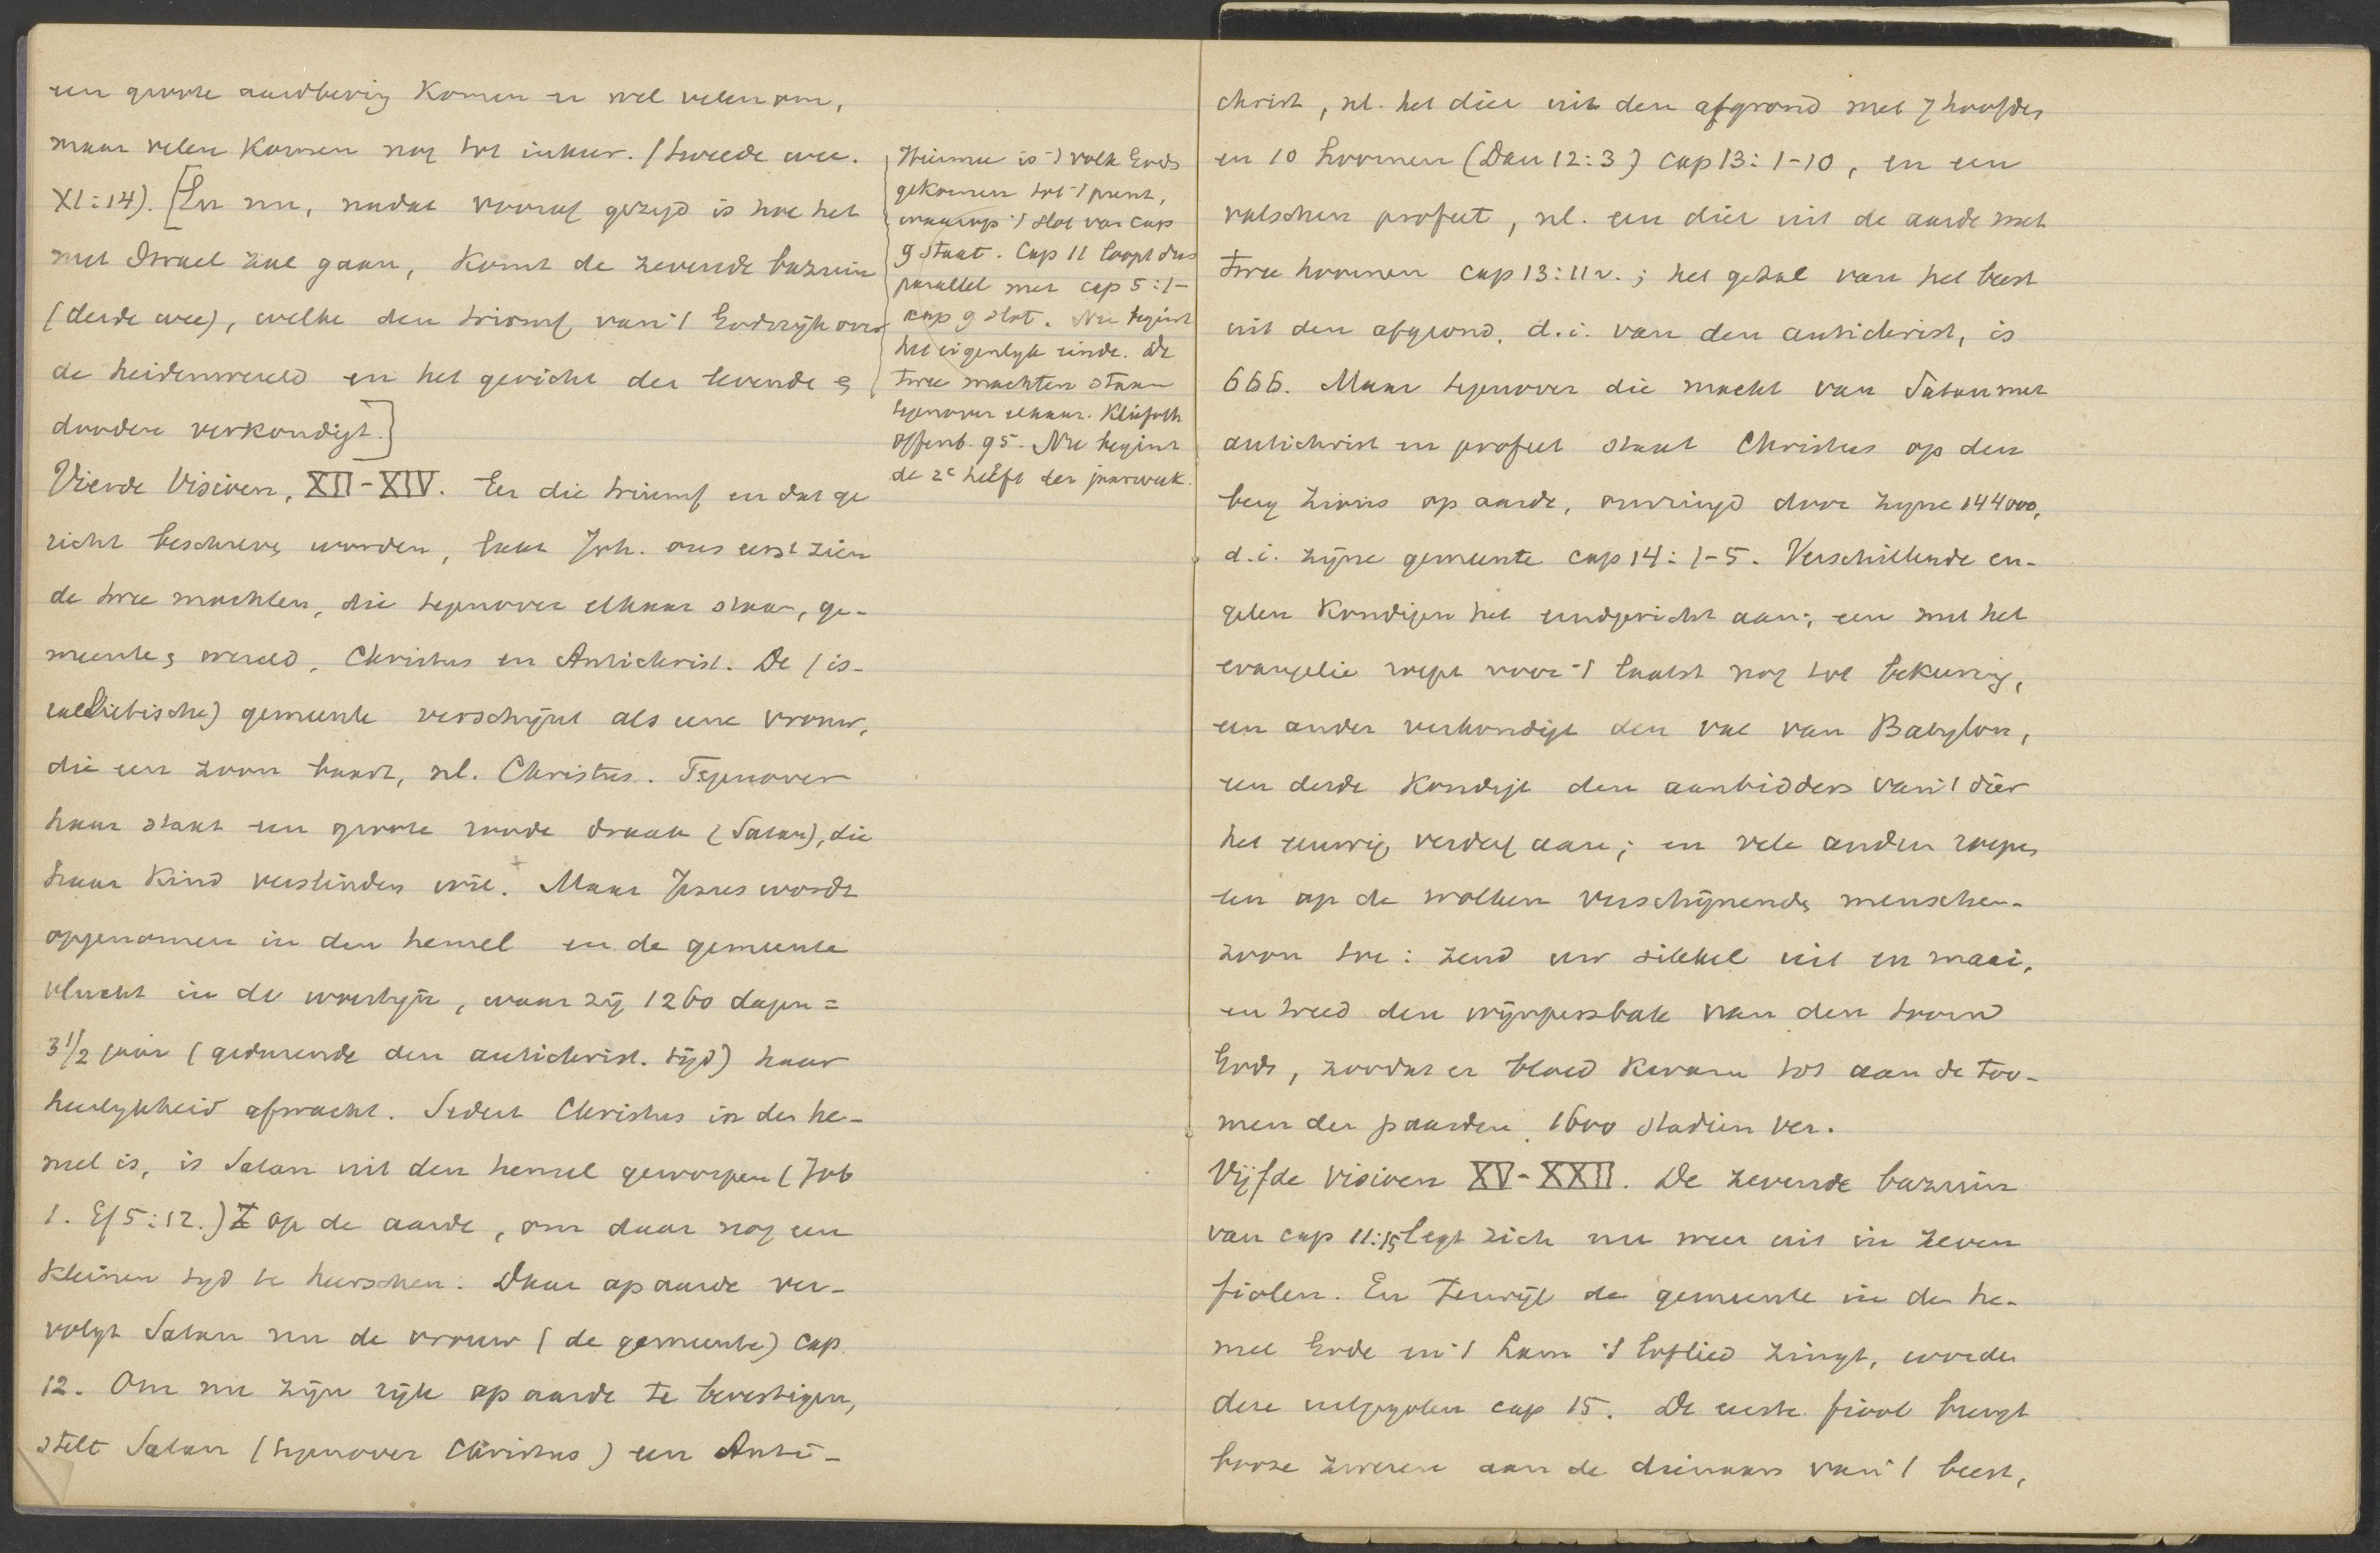 een groote aardbeving komen er wel velen om,
maar velen komen nog tot inkeer. (tweede wee.
XI:14). [En nu, nadat vooraf gezegd is hoe het
met Israel zal gaan, komt de zevende bazuin
(derde wee), welke den triomf van 't Godsrijk over
de heidenwereld en het gericht der levende en
dooden verkondigt.]
Vierde Visioen, XII-XIV. Eer die triumf en dat ge
richt beschreven worden, laat Joh. ons eerst zien
de twee machten, die tegenover elkaar staan, ge-
meente en wereld, Christus en Antichrist. De (is-
raelietische) gemeente verschijnt als eene vrouw,
die een zoon baart, nl. Christus. Tegenover
haar staat een groote roode draak (Satan), die
haar kind verslinden wil. Maar Jezus wordt
opgenomen in den hemel en de gemeente
vlucht in de woestijn, waar zij 1260 dagen =
3 1/2 jaar (gedurende den antichrist. tijd) haar
heerlykheid afwacht. Sedert Christus in den he-
mel is, is Satan uit den hemel geworpen (Job
1. Ef 5:12.) op de aarde, om daar nog een
kleinen tyd te heerschen. Daar op aarde ver-
volgt Satan nu de vrouw (de gemeente) cap.
12. Om nu zijn rijk op aarde te bevestigen,
stelt Satan (tegenover Christus) een Anti-
Hiermee is 't volk Gods
gekomen tot 't punt,
waarop 't slot van cap
9 staat. Cap 11 loopt dus
parallel met cap 5:1-
cap 9 slot. Nu begint
het eigenlyk einde. De
twee machten staan
tegenover elkaar. Kliefoth
Offenb. 95. Nu begint
de 2e helft der jaarweek.
christ, nl. het dier uit den afgrond met 7 hoofden
en 10 hoornen (Dan 12:3) cap 13:1-10, en een
valschen profeet, nl. een dier uit de aarde met
twee hoornen cap 13:11v.; het getal van het beest
uit den afgrond, d.i. van den antichrist, is
666. Maar tegenover die macht van Satan met
antichrist en profeet staat Christus op den
berg Zions op aarde, omringd door zyne 144000,
d.i. zijne gemeente cap 14:1-5. Verschillende en-
gelen kondigen het eindgericht aan; een met het
evangelie roept voor 't laatst nog tot bekeering,
een ander verkondigt den val van Babylon,
een derde kondigt den aanbidders van 't dier
het eeuwig verderf aan; en vele andere roepen
een op de wolken verschijnende menschen-
zoon toe: zend uw sikkel uit en maai,
en treed den wijnpersbak van den toorn
Gods, zoodat er bloed kwam tot aan de too-
men der paarden, 1600 stadien ver.
Vijfde visioen XV-XXII. De zevende bazuin
van cap 11:15 legt zich nu weer uit in zeven
fiolen. En terwijl de gemeente in den he-
mel Gode en 't Lam 't loflied zingt, worden
deze uitgegoten cap 15. De eerste fiool brengt
booze zweren aan de dienaars van 't beest,